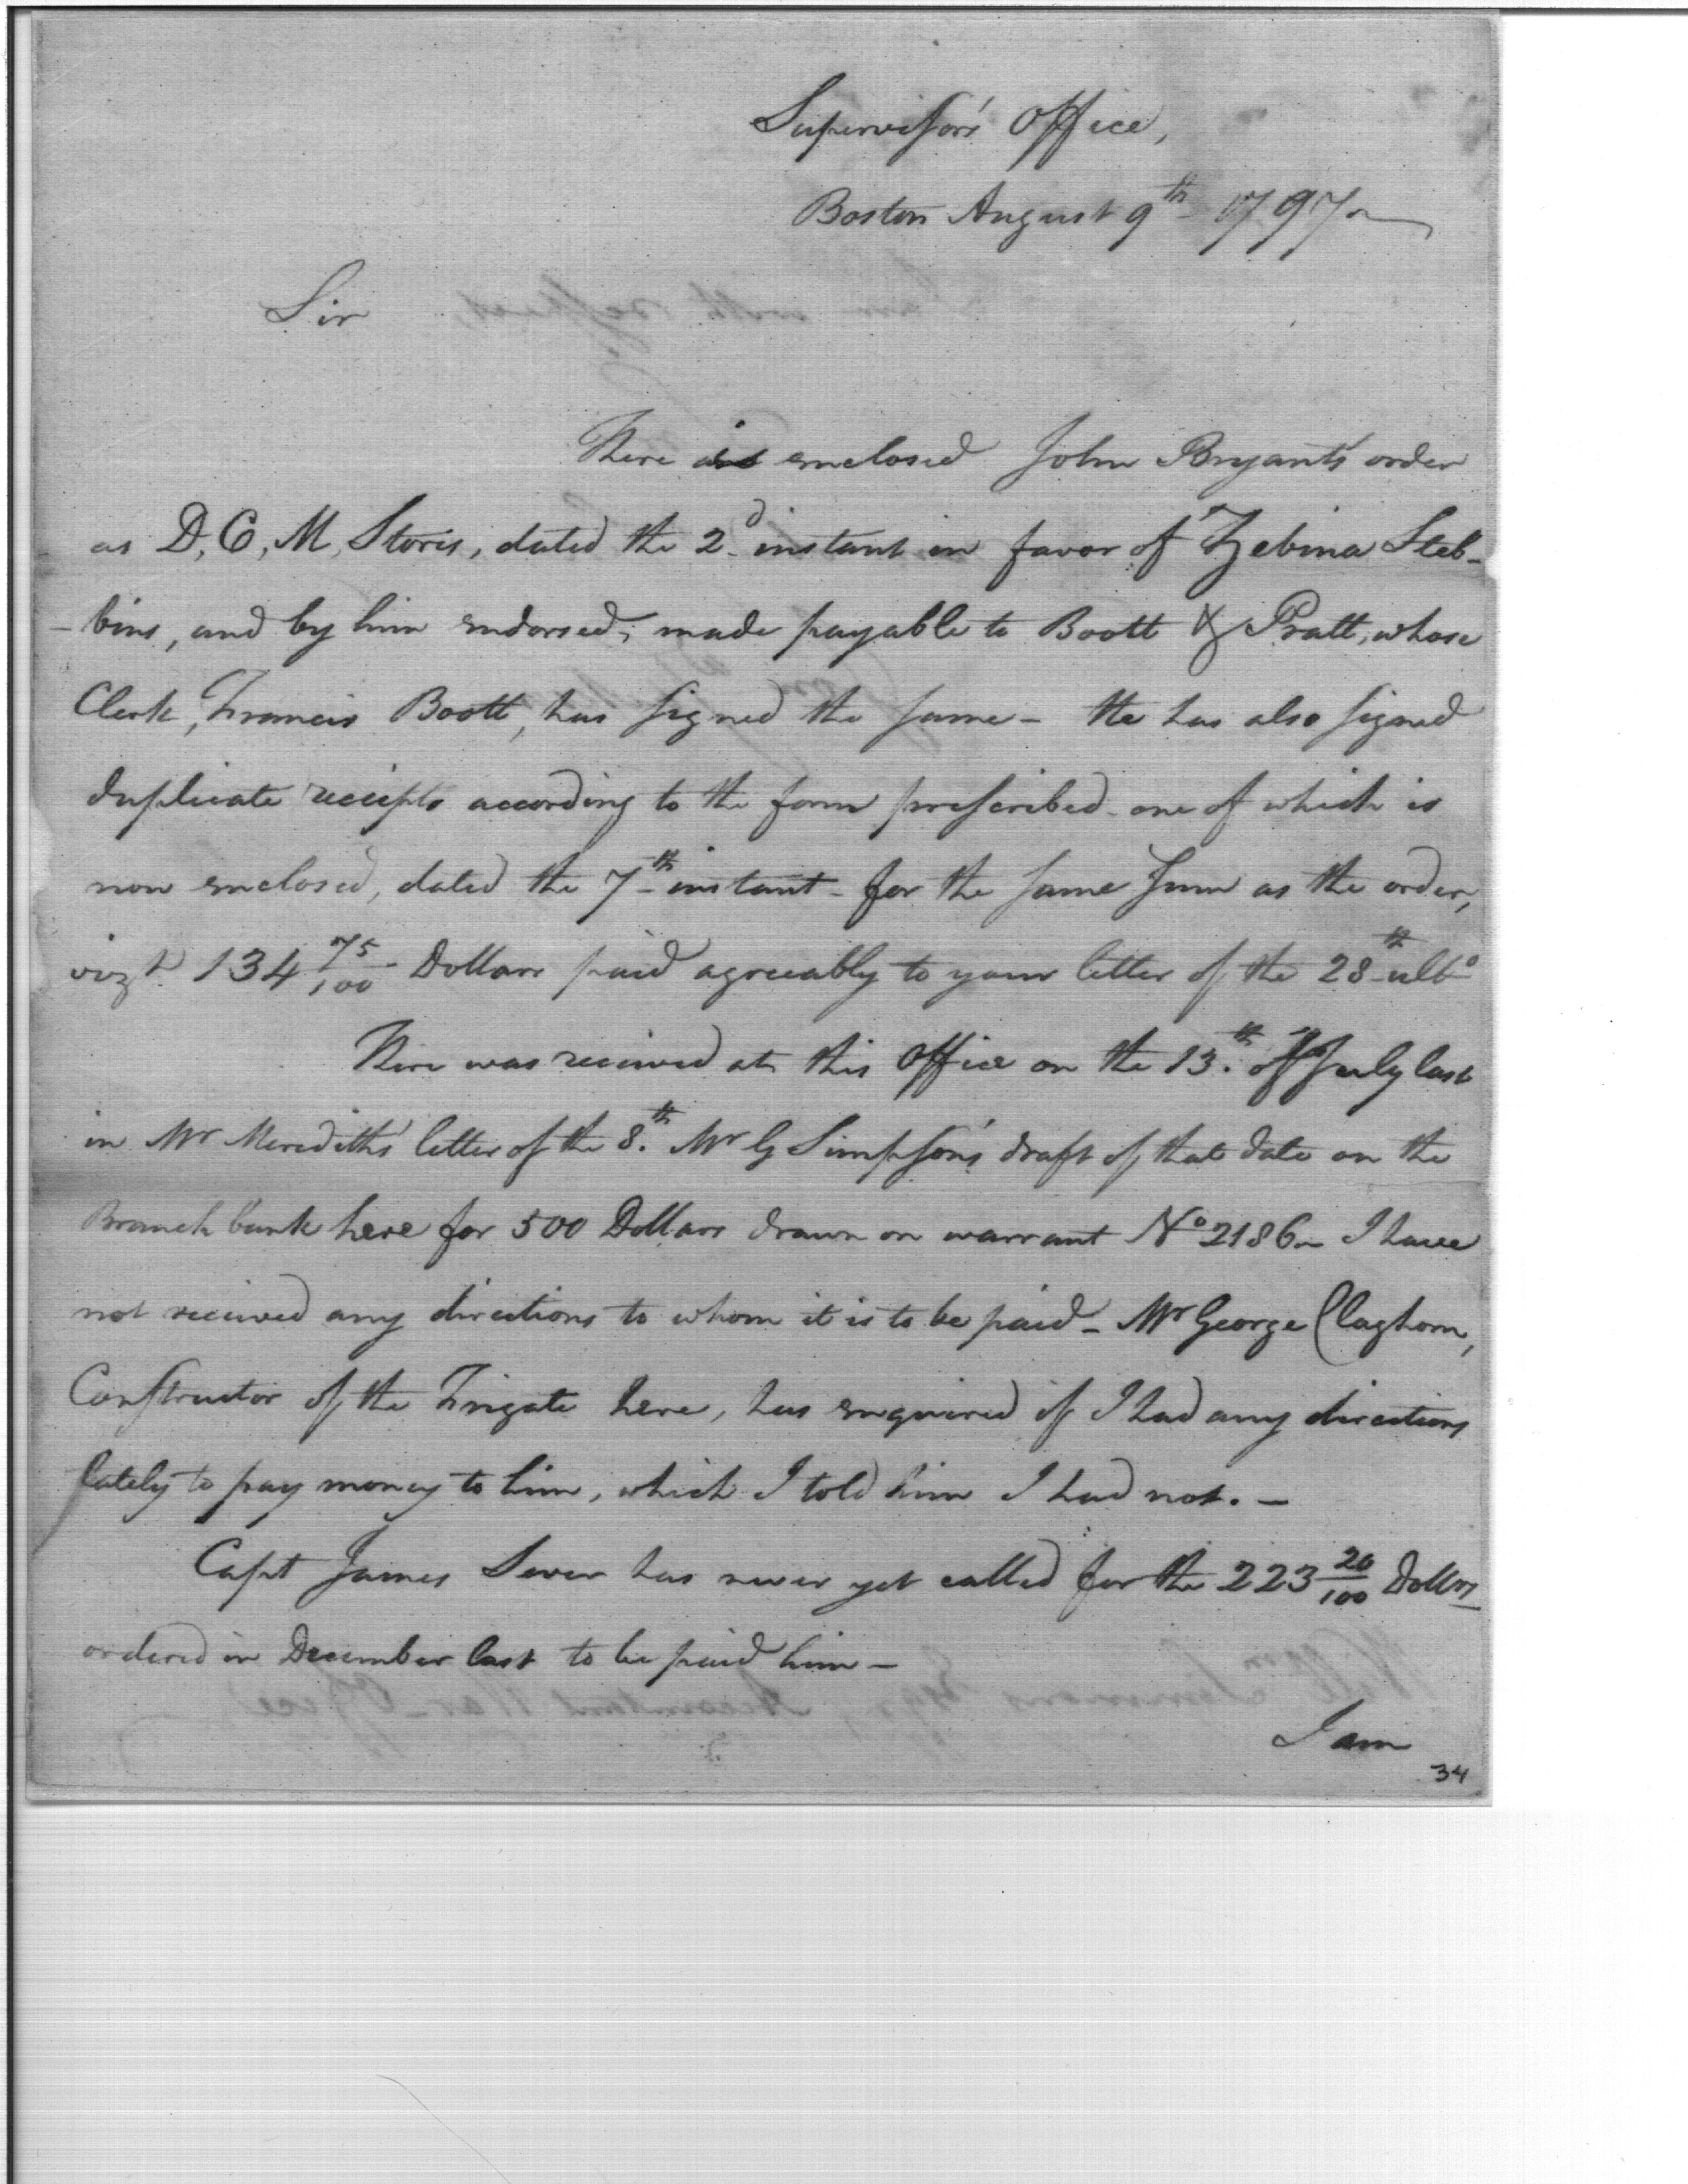 Supervisors' Office,
Boston August 9th 1797
Sir
There is enclosed John Bryant's order
as D, C, M, Stores, dated the 2d instant in favor of Zebina Steb-
-bins, and by him endorsed, made payable to Boott & Pratt, whose
Clerk, Francis Boott, has signed the same - He has also signed
duplicate receipts according to the form prescribed - one of which is
now enclosed, dated the 7th instant - for the same sum as the order,
vizt 134 75/100 Dollars paid agreeably to your letter of the 28th ulto
There was received at this Office on the 13th of July last
in Mr Meredith's letter of the 8th Mr G Simpson's draft of that date on the
Branch bank here for 500 Dollars drawn on warrant No 2186 - I have
not received any directions to whom it is to be paid - Mr George Claghorn,
Constructor of the Frigate here, has enquired if I had any directions
lately to pay money to him, which I told him I had not. -
Capt James Sever has never yet called for the 223 26/100 Dollars
ordered in December last to be paid him -
I am
34